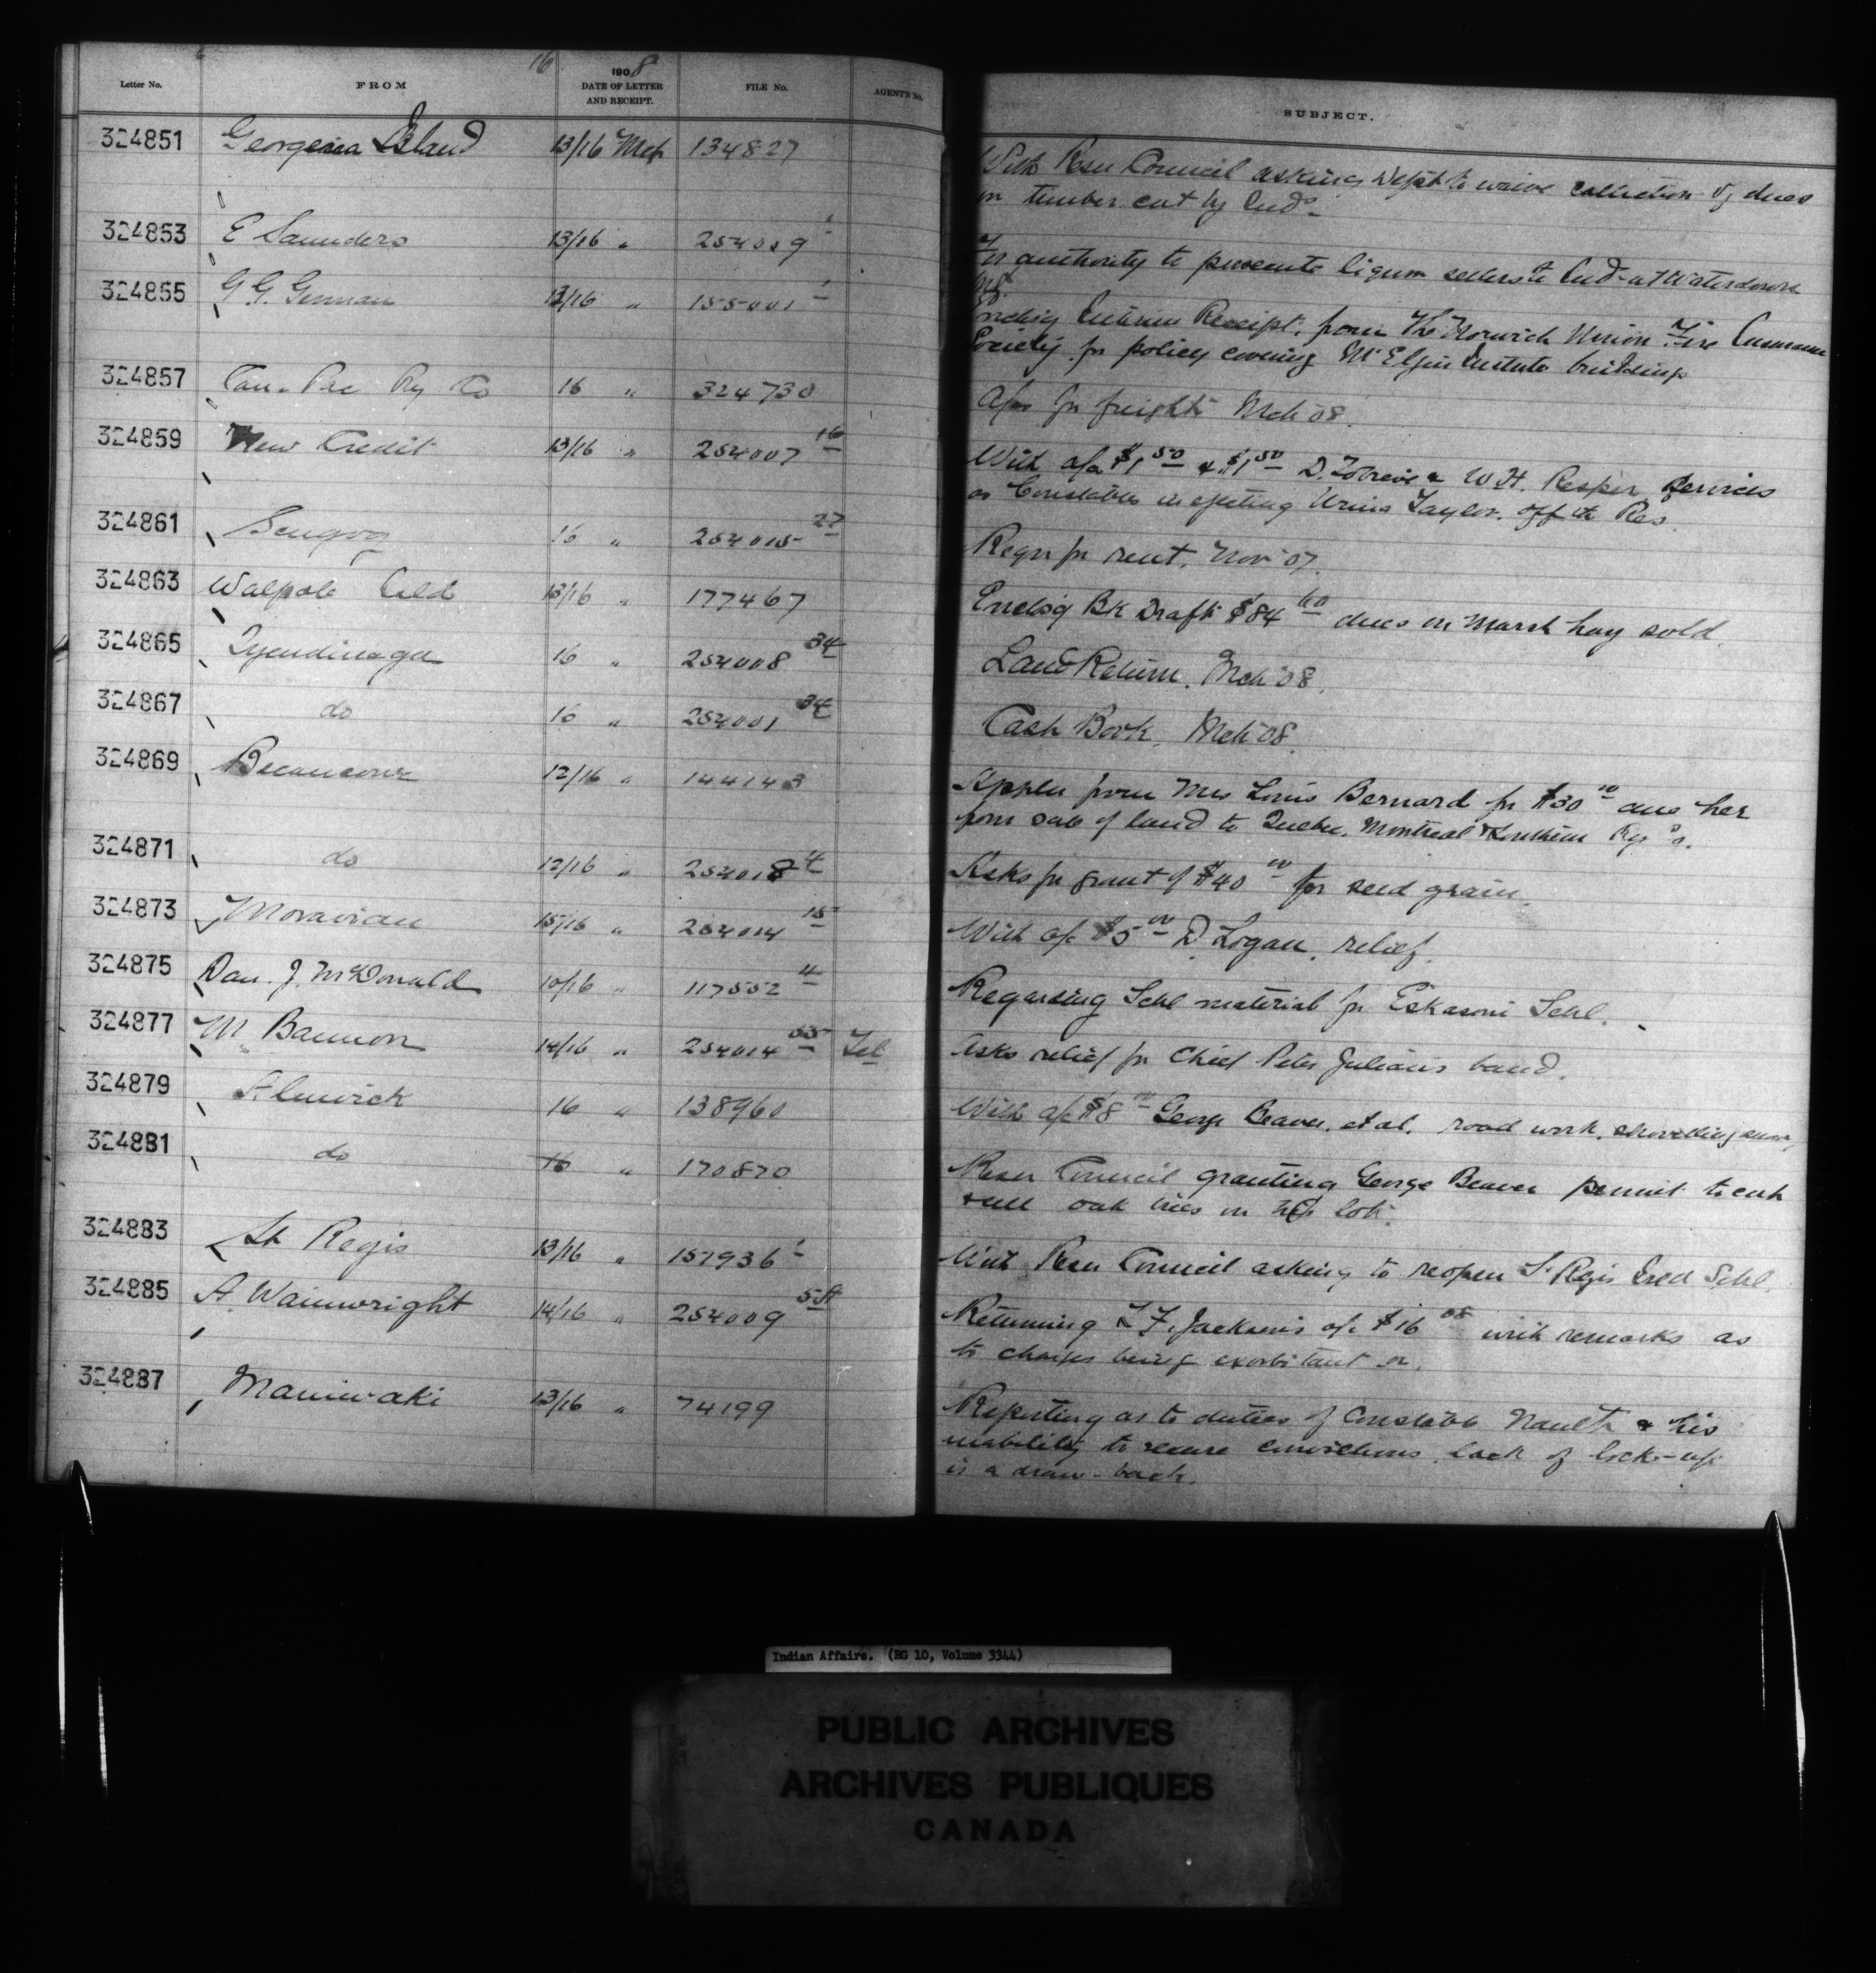 16
Letter No. FROM 1908 DATE OF LETTER AND RECEIPT. FILE No. AGENT'S No. SUBJECT.
324851 Georgina Island 13/16 Mch 134827 With Resn Council asking Dept to waive collection of dues
on timber cut by Inds
324853 E Saunders 13/16 " 254009 1 For authority to prosecute liquor sellers to Inds at Waterdown
NB.
324855 G.G. German 13/16 " 155001 1 Encls'g Interim Receipt from The Norwich Union Fire Insurance
Society for policy covering Mt Elgin Institute buildings
324857 Can. Pac Ry Co 16 " 324730 A/cs for freight Mch '08.
324859 New Credit 13/16 " 254007 16 With a/cs $1 50 & $1 50 D. & W.H. services
as Constables in ejecting Taylor off the Res.
324861 Scugog 16 " 254015 27 Reqn for rent, Nov '07.
324863 Walpole Isld 13/16 " 177467 Encls'g Bk Draft $84 60 dues on marsh hay sold.
324865 Tyendinaga 16 " 254008 34 Land Return, Mch '08.
324867 do 16 " 254001 34 Cash Book, Mch '08.
324869 Becancour 12/16 " 144143 Appln from Mrs Louis Bernard for $30 00 due her
from sale of land to Quebec, Montreal & Southern Ry Co.
324871 do 12/16 " 254018 4 Asks for grant of $40 00 for seed grain.
324873 Moravian 15/16 " 254014 15 With a/c $5 00 D. Logan, relief.
324875 Dan. J. McDonald 10/16 " 117552 4 Regarding Schl material for Eskasoni Schl.
324877 M Bannon 14/16 " 254014 55 Tel Asks relief for Chief Peter Julian's band.
324879 Alnwick 16 " 138960 With a/c $8 00 George Beaver, et al, road work, shovelling snow,
324881 do 16 " 170870 Resn Council granting George Beaver permit to cut
& sell oak trees on his lot.
324883 St Regis 13/16 " 157936 1 With Resn Council asking to reopen St Regis Isld Schl.
324885 A. Wainwright 14/16 " 254009 5A Returning Z F. Jackson's a/c $16 05 with remarks as
to charges being exorbitant or.
324887 Maniwaki 13/16 " 74199 Reporting as to duties of Constable Nault & his
inability to secure convictions, lack of lock-up
is a draw-back.
Indian Affairs. (RG 10, Volume 3344)
PUBLIC ARCHIVES
ARCHIVES PUBLIQUES
CANADA